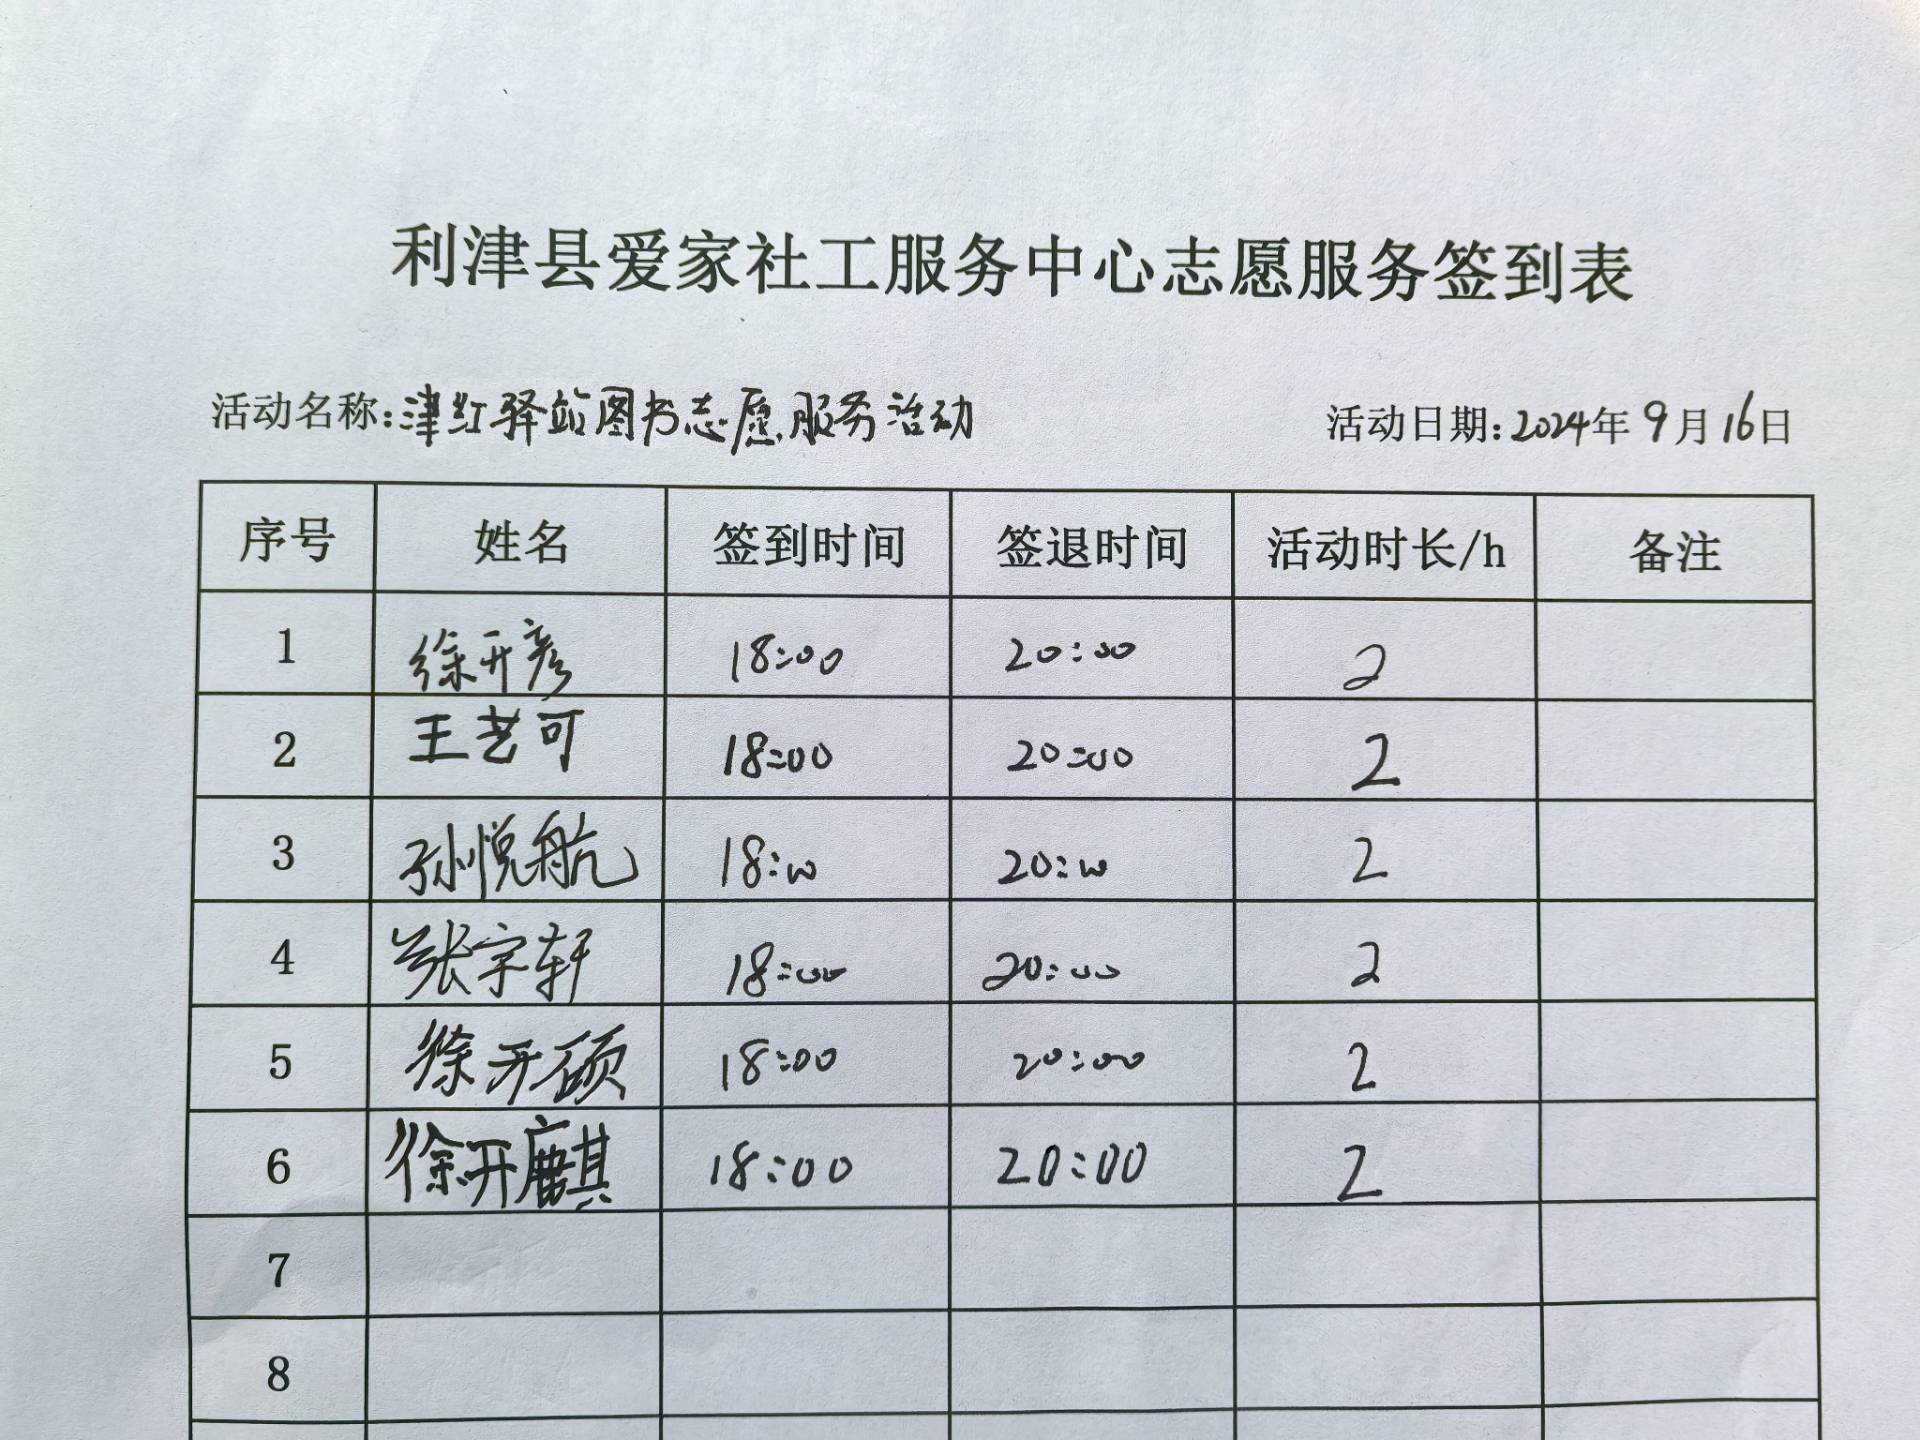 利津县爱家社工服务中心志愿服务签到表
活动名称:津红驿站图书志愿服务活动 活动日期:2024年9月16日
序号 姓名 签到时间 签退时间 活动时长/h 备注
1 徐开彦 18:00 20:00 2
2 王艺可 18:00 20:00 2
3 孙悦航 18:00 20:00 2
4 张宇轩 18:00 20:00 2
5 徐开硕 18:00 20:00 2
6 徐开麒 18:00 20:00 2
7
8